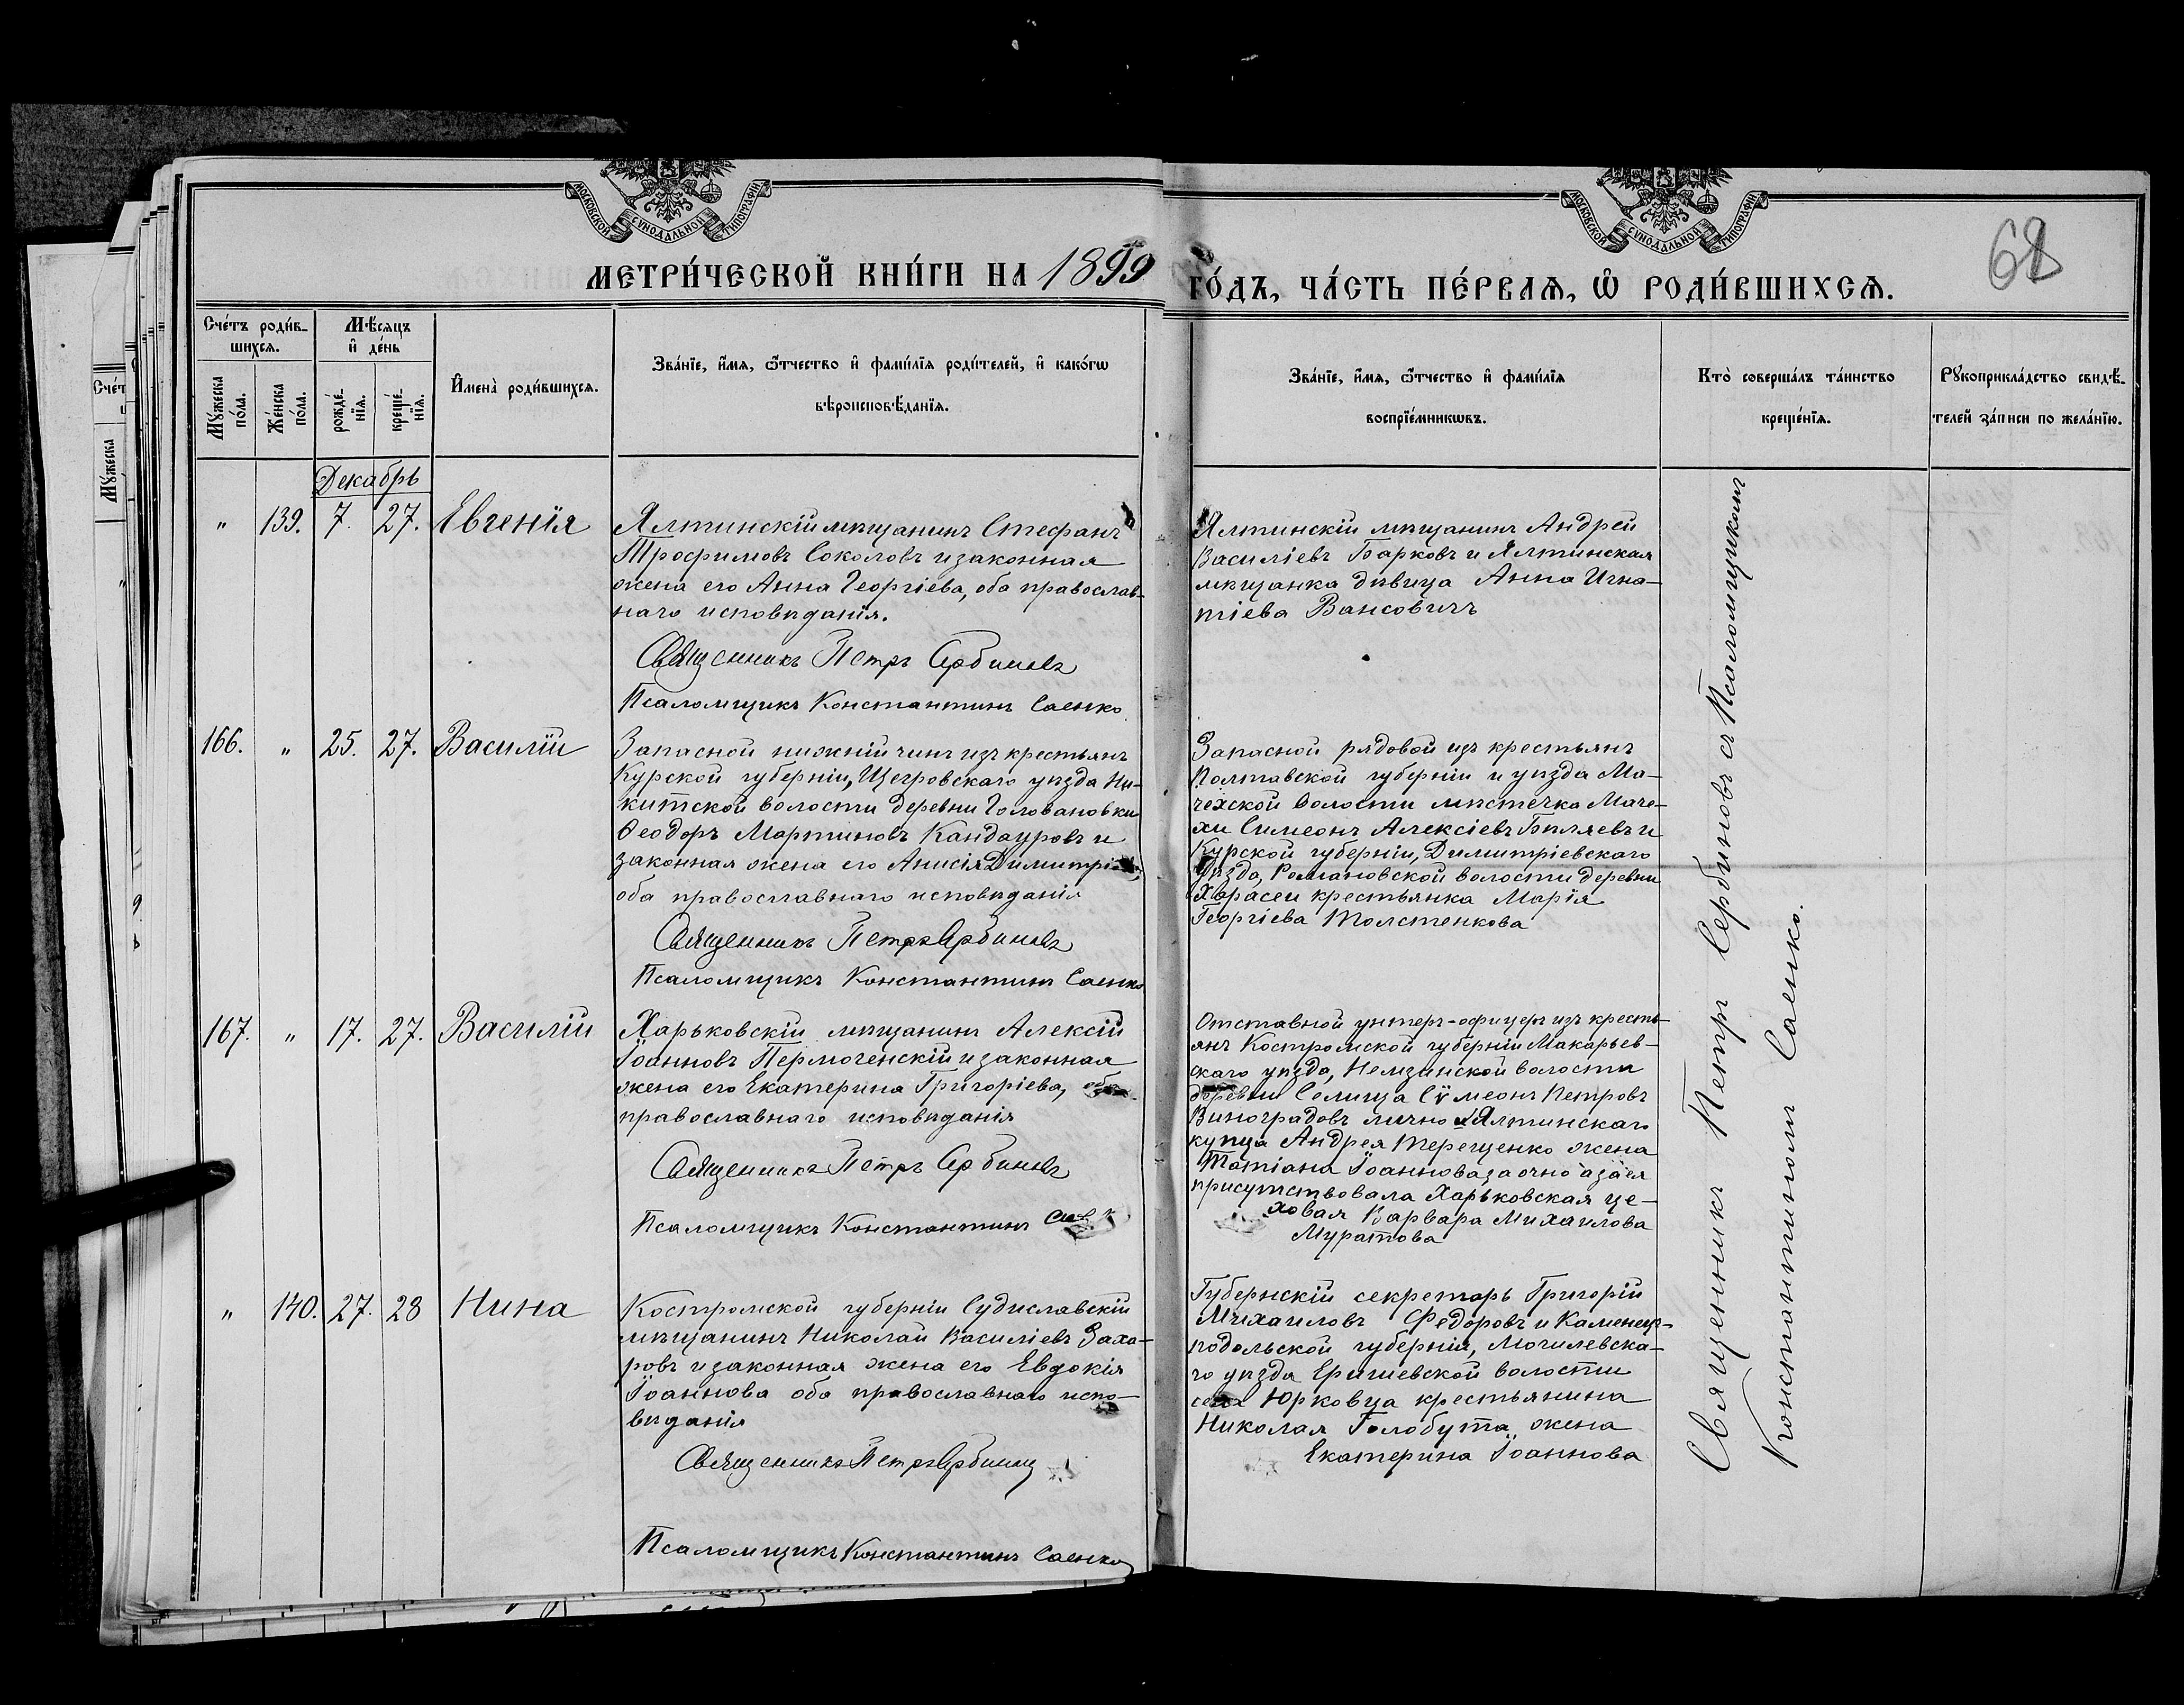 МОСКОВСКОЙ СѴНОДАЛЬНОЙ ТИПОГРАФІИ
МОСКОВСКОЙ СѴНОДАЛЬНОЙ ТИПОГРАФІИ
МЕТРИ́ЧЕСКОЙ КНИ́ГИ НА 1899 ГО́ДЪ, ЧА́СТЬ ПЕ́РВАѦ, Ѡ҆ РОДИ́ВШИХСѦ.
68
Сче́тъ роди́в-
шихсѧ.
Мѣ́сѧцъ
и҆ де́нь
Мꙋ́жеска
по́ла.
Же́нска
по́ла.
рожде́-
нїѧ.
креще́-
нїѧ.
И҆мена̀ роди́вшихсѧ.
Зва́нїе, и҆́мѧ, ѻ҆́тчество и҆ фами́лїѧ роди́телей, и҆ како́гѡ
вѣроисповѣ́данїѧ.
Зва́нїе, и҆́мѧ, ѻ҆́тчество и҆ фами́лїѧ
воспрїе́мникѡвъ.
Кто̀ соверша́лъ та́инство
креще́нїѧ.
Рꙋкоприкла́дство свидѣ́-
телей за́писи по жела́нїю.
Декабрь
" 139. 7. 27. Евгенія
Ялтинскій мѣщанинъ Стефанъ
Трофимовъ Соколовъ и законная
жена его Анна Георгіева, оба православ-
наго исповѣданія.
Священникъ Петръ Сербиновъ
Псаломщикъ Константинъ Саенко
Ялтинскій мѣщанинъ Андрей
Василіевъ Барковъ и Ялтинская
мѣщанка дѣвица Анна Игна-
тіева Вансовичъ
166. " 25. 27. Василій
Запасной нижній чинъ изъ крестьянъ
Курской губерніи, Щигровскаго уѣзда Ни-
китской волости деревни Головановки
Ѳеодоръ Мартиновъ Кандауровъ и
законная жена его Анисія Димитріева,
оба православнаго исповѣданія
Священникъ Петръ Сербиновъ
Псаломщикъ Константинъ Саенко
Запасной рядовой изъ крестьянъ
Полтавской губерніи и уѣзда Ма-
чехской волости мѣстечка Маче-
хи Симеонъ Алексіевъ Бѣляевъ и
Курской губерніи, Димитріевскаго
уѣзда, Романовской волости деревни
Харасеи крестьянка Марія
Георгіева Толстенкова
167. " 17. 27. Василій
Харьковскій мѣщанинъ Алексій
Іоанновъ Пермогенскій и законная
жена его Екатерина Григоріева, оба
православнаго исповѣданія
Священникъ Петръ Сербиновъ
Псаломщикъ Константинъ
Отставной унтеръ-офицеръ изъ кресть-
янъ Костромской губерніи Макарьев-
скаго уѣзда, Немзинской волости
деревни Селища Сѵмеонъ Петровъ
Виноградовъ лично и Ялтинскаго
купца Андрея Терещенко жена
Татіана Іоаннова заочно а за ея
присутствовала Харьковская це-
ховая Варвара Михаилова
Муратова
" 140. 27. 28 Нина
Костромской губерніи Судиславскій
мѣщанинъ Николай Василіевъ Заха-
ровъ и законная жена его Евдокія
Іоаннова оба православнаго испо-
вѣданія
Священникъ Петръ Сербиновъ
Псаломщикъ Константинъ Саенко
Губернскій секретарь Григорій
Михаиловъ Федоровъ и Каменец-
подольской губерніи, Могилевска-
го уѣзда волости
села Юрковца крестьянина
Николая Голобута жена
Екатерина Іоаннова
Священникъ Петръ Сербиновъ съ Псаломщикомъ
Константиномъ Саенко.